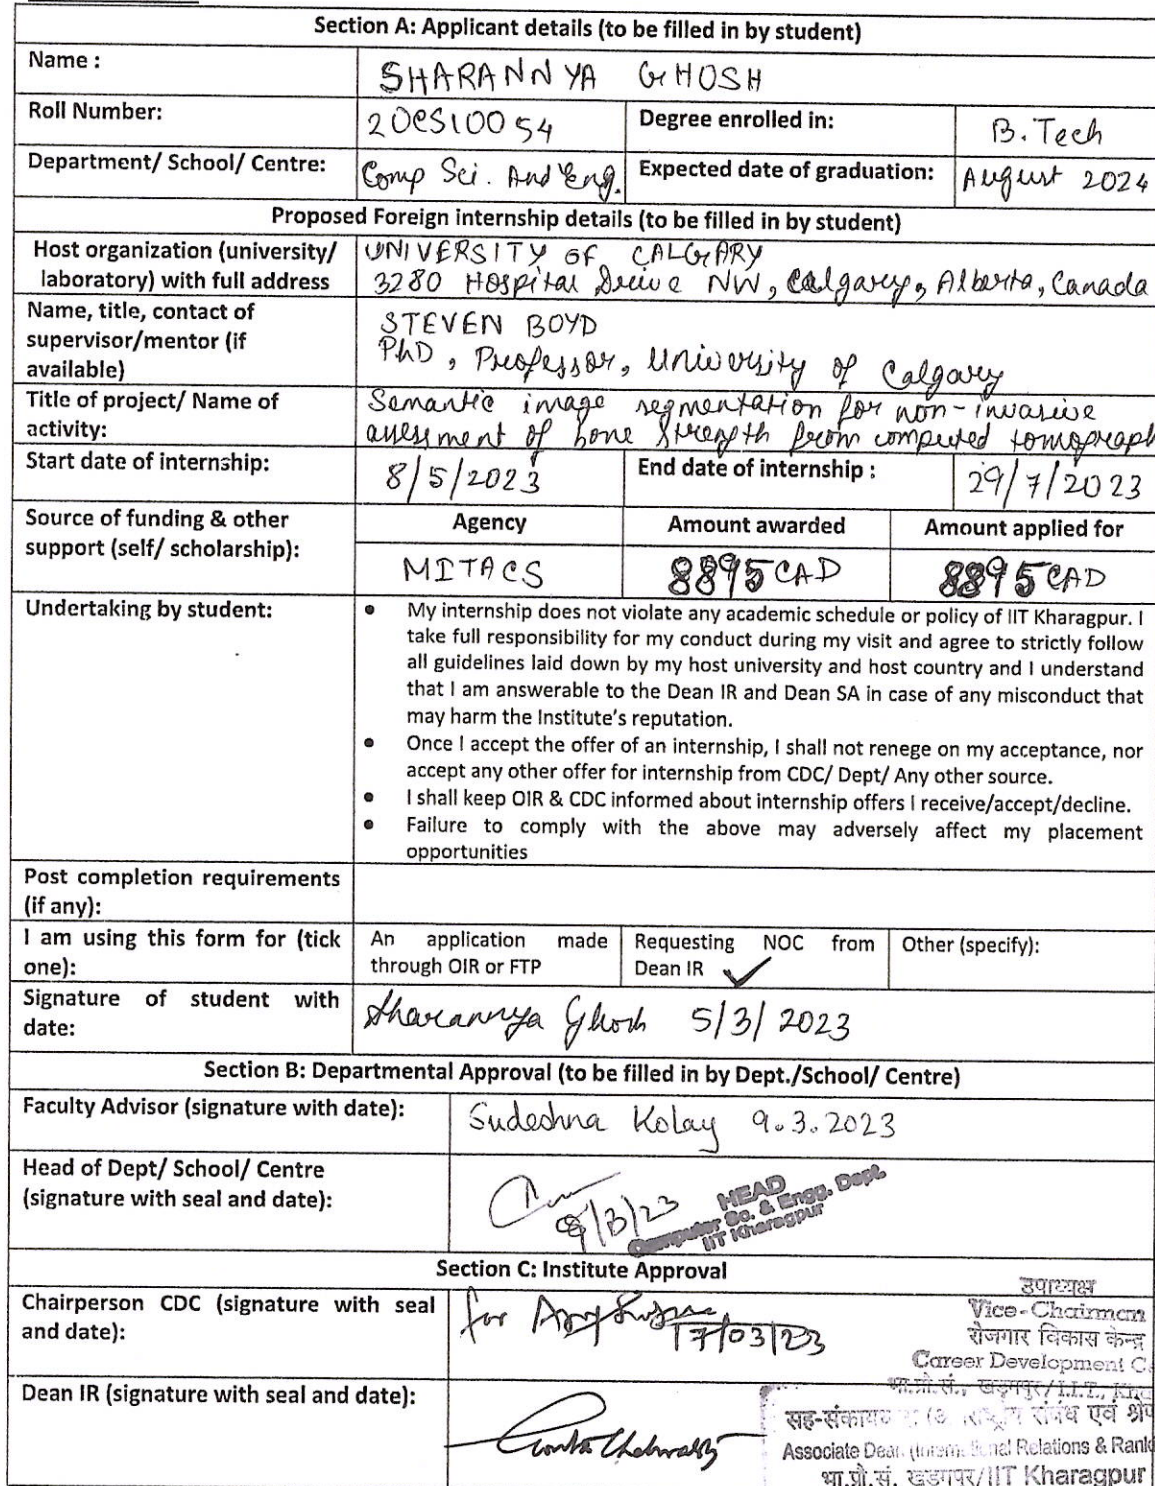 Section A: Applicant details (to be filled in by student)
Name :
SHARANNYA GHOSH
Roll Number:
20CS10054
Degree enrolled in:
B. Tech
Department/ School/ Centre:
Comp Sci. And Eng.
Expected date of graduation:
August 2024
Proposed Foreign internship details (to be filled in by student)
Host organization (university/
laboratory) with full address
UNIVERSITY OF CALGARY
3280 Hospital Drive NW, Calgary, Alberta, Canada
Name, title, contact of
supervisor/mentor (if
available)
STEVEN BOYD
PhD, Professor, University of Calgary
Title of project/ Name of
activity:
Semantic image segmentation for non-invasive
assessment of bone strength from computed tomograph
Start date of internship:
8/5/2023
End date of internship :
29/7/2023
Source of funding & other
support (self/ scholarship):
Agency
Amount awarded
Amount applied for
MITACS
8895 CAD
8895 CAD
Undertaking by student:
• My internship does not violate any academic schedule or policy of IIT Kharagpur. I
take full responsibility for my conduct during my visit and agree to strictly follow
all guidelines laid down by my host university and host country and I understand
that I am answerable to the Dean IR and Dean SA in case of any misconduct that
may harm the Institute's reputation.
• Once I accept the offer of an internship, I shall not renege on my acceptance, nor
accept any other offer for internship from CDC/ Dept/ Any other source.
• I shall keep OIR & CDC informed about internship offers I receive/accept/decline.
• Failure to comply with the above may adversely affect my placement
opportunities
Post completion requirements
(if any):
I am using this form for (tick
one):
An application made
through OIR or FTP
Requesting NOC from
Dean IR ✓
Other (specify):
Signature of student with
date:
Sharannya Ghosh 5/3/2023
Section B: Departmental Approval (to be filled in by Dept./School/ Centre)
Faculty Advisor (signature with date):
Sudeshna Kolay 9.3.2023
Head of Dept/ School/ Centre
(signature with seal and date):
9/3/23
HEAD
Computer Sc. & Engg. Dept.
IIT Kharagpur
Section C: Institute Approval
Chairperson CDC (signature with seal
and date):
for
17/03/23
उपाध्यक्ष
Vice-Chairman
रोजगार विकास केन्द्र
Career Development C
भा.प्रौ.सं., खड़गपुर/I.I.T.,
Dean IR (signature with seal and date):
संबंध एवं
Associate Dean (International Relations & Rank
भा.प्रौ.सं. खड़गपुर/IIT Kharagpur